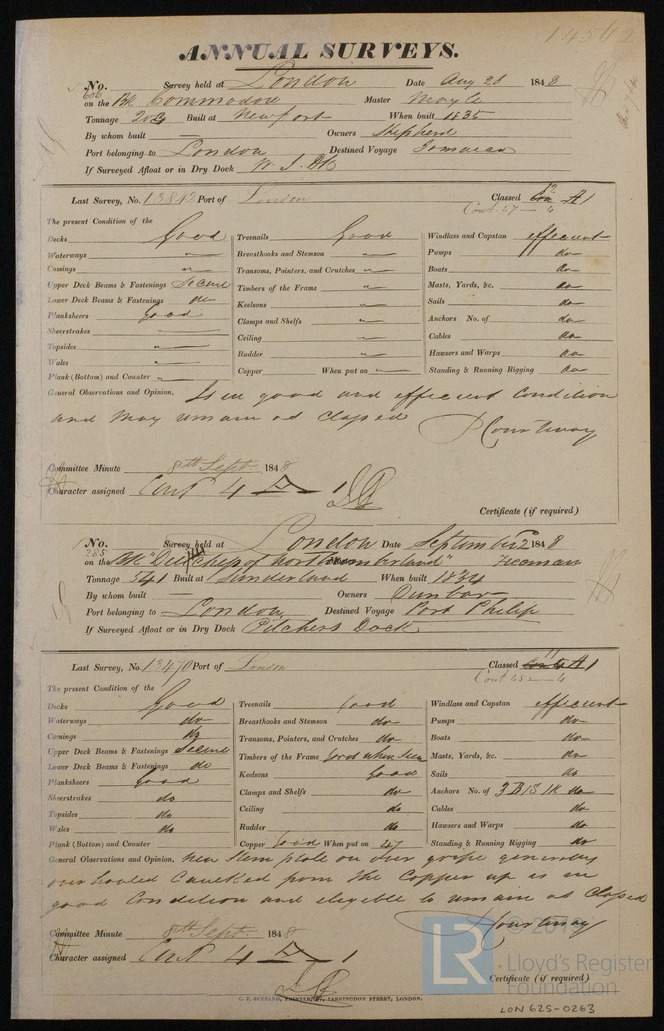 14562
ANNUAL SURVEYS.
No. 606 Survey held at London Date Aug 28 1848
on the Bk Commodore Master Moyle
Tonnage 204 Built at Newport When built 1835
By whom built — Owners Shepherd
Port belonging to London Destined Voyage Jamaica
If Surveyed Afloat or in Dry Dock W. I. Dk
Last Survey, No. 13812 Port of London Classed 12 A1
Cont 47 — 4
The present Condition of the
Decks Good Treenails Good Windlass and Capstan efficient
Waterways " Breasthooks and Stemson " Pumps do
Comings " Transoms, Pointers, and Crutches " Boats do
Upper Deck Beams & Fastenings Secure Timbers of the Frame " Masts, Yards, &c. do
Lower Deck Beams & Fastenings do Keelsons " Sails do
Planksheers good Clamps and Shelfs " Anchors No. of do
Sheerstrakes — Ceiling " Cables do
Topsides — Rudder " Hawsers and Warps do
Wales — Copper When put on Standing & Running Rigging do
Plank (Bottom) and Counter "
General Observations and Opinion, Is in good and efficient Condition
and may remain as classed P Courtenay
Committee Minute 8th Sept 1848
Character assigned Cont 4 A 1
Certificate (if required)
No. 285 Survey held at London Date September 2 1848
on the Bk "Dutchess of Northumberland" Freeman
Tonnage 541 Built at Sunderland When built 1834
By whom built — Owners Dunbar
Port belonging to London Destined Voyage Port Philip
If Surveyed Afloat or in Dry Dock Pitchers Dock
Last Survey, No. 13470 Port of London Classed 11 A1
Cont 45 — 4
The present Condition of the
Decks Good Treenails Good Windlass and Capstan efficient
Waterways do Breasthooks and Stemson do Pumps do
Comings do Transoms, Pointers, and Crutches do Boats do
Upper Deck Beams & Fastenings Secure Timbers of the Frame Good when seen Masts, Yards, &c. do
Lower Deck Beams & Fastenings do Keelsons Good Sails do
Planksheers Good Clamps and Shelfs do Anchors No. of 3 B 1 S 1 K do
Sheerstrakes do Ceiling do Cables do
Topsides do Rudder do Hawsers and Warps do
Wales do Copper Good When put on 47 Standing & Running Rigging do
Plank (Bottom) and Counter
General Observations and Opinion, new stem plate on over gripe generally
overhauled Caulked from the Copper up is in
good Condition and eligible to remain as Classed
P Courtenay
Committee Minute 8th Sept 1848
Character assigned Cont 4 A 1
Certificate (if required)
LR © 2019
Lloyd's Register
Foundation
LON 625-0263